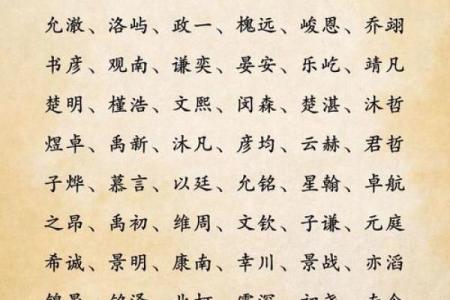 允澈、洛屿、政一、槐远、峻恩、乔翊
书彦、观南、谦奕、晏安、乐屹、靖凡
楚明、槿浩、文熙、闵森、楚湛、沐哲
煜卓、禹新、沐凡、彦均、云赫、君哲
子烨、慕言、以廷、允铭、星翰、卓航
之昂、禹初、维周、文钦、子谦、元庭
希诚、景明、康南、幸川、景战、亦滔